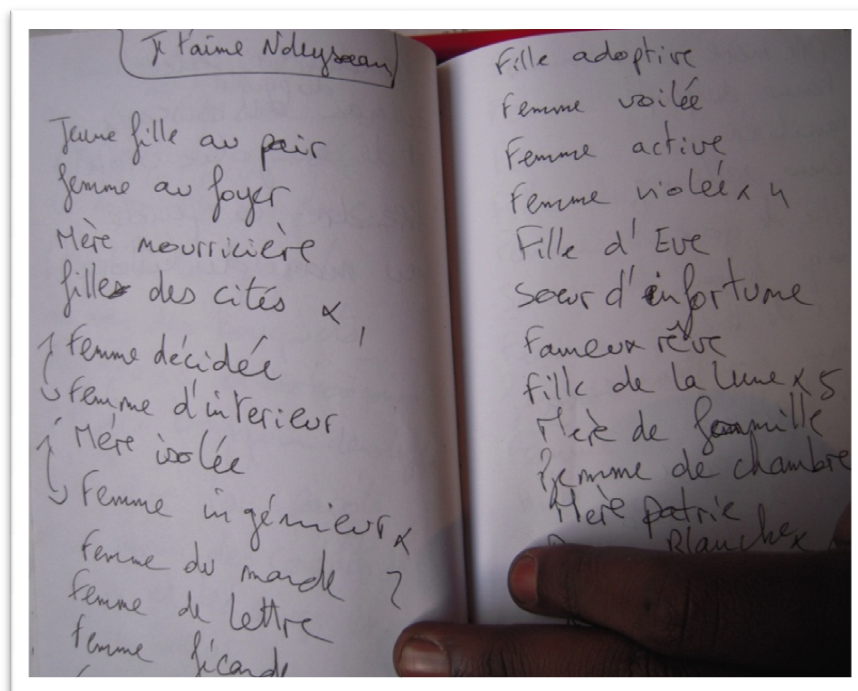 Je t'aime Ndeysaan
Jeune fille au pair
femme au foyer
Mère nourricière
filles des cités x 1
Femme décidée
Femme d'interieur
Mère isolée
Femme ingénieur x
Femme du monde 2
Femme de lettre
Femme fécande
Fille adoptive
Femme voilée
Femme active
Femme violée x 4
Fille d'Eve
Sœur d'infortume
Fameux rêve
Fille de la Lune x 5
Mère de famille
Femme de chambre
Mère patrie
Blanche x